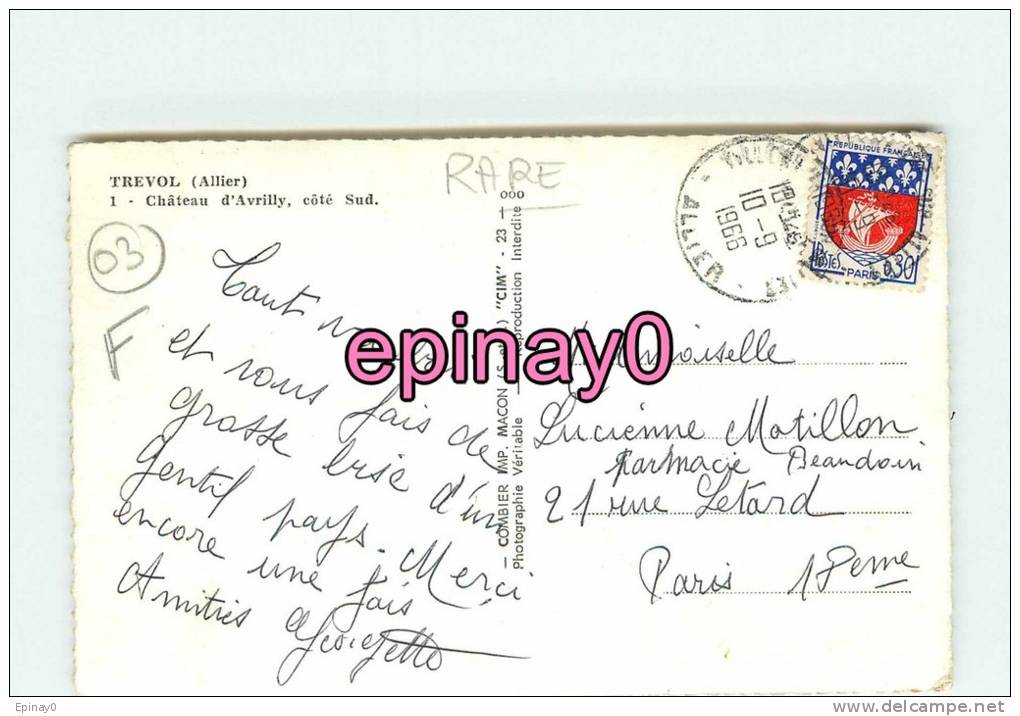 TREVOL (Allier)
1 - Château d'Avrilly, côté Sud.
RARE
03
F
Tout
et vous fais de
grosse bise d'un
Gentil pays. Merci
encore une fois
Amitiés
Georgette
— COMBIER IMP. MACON "CIM" - 23 - 000
Photographie Véritable Reproduction Interdite
ALLIER
18H45
10-9
1966
REPUBLIQUE FRANÇAISE
POSTES
PARIS
0,30
epinay0
Lucienne Matillon
Parmacie Beaudoin
21 rue Letard
Paris 18eme
Epinay0
www.delcampe.net